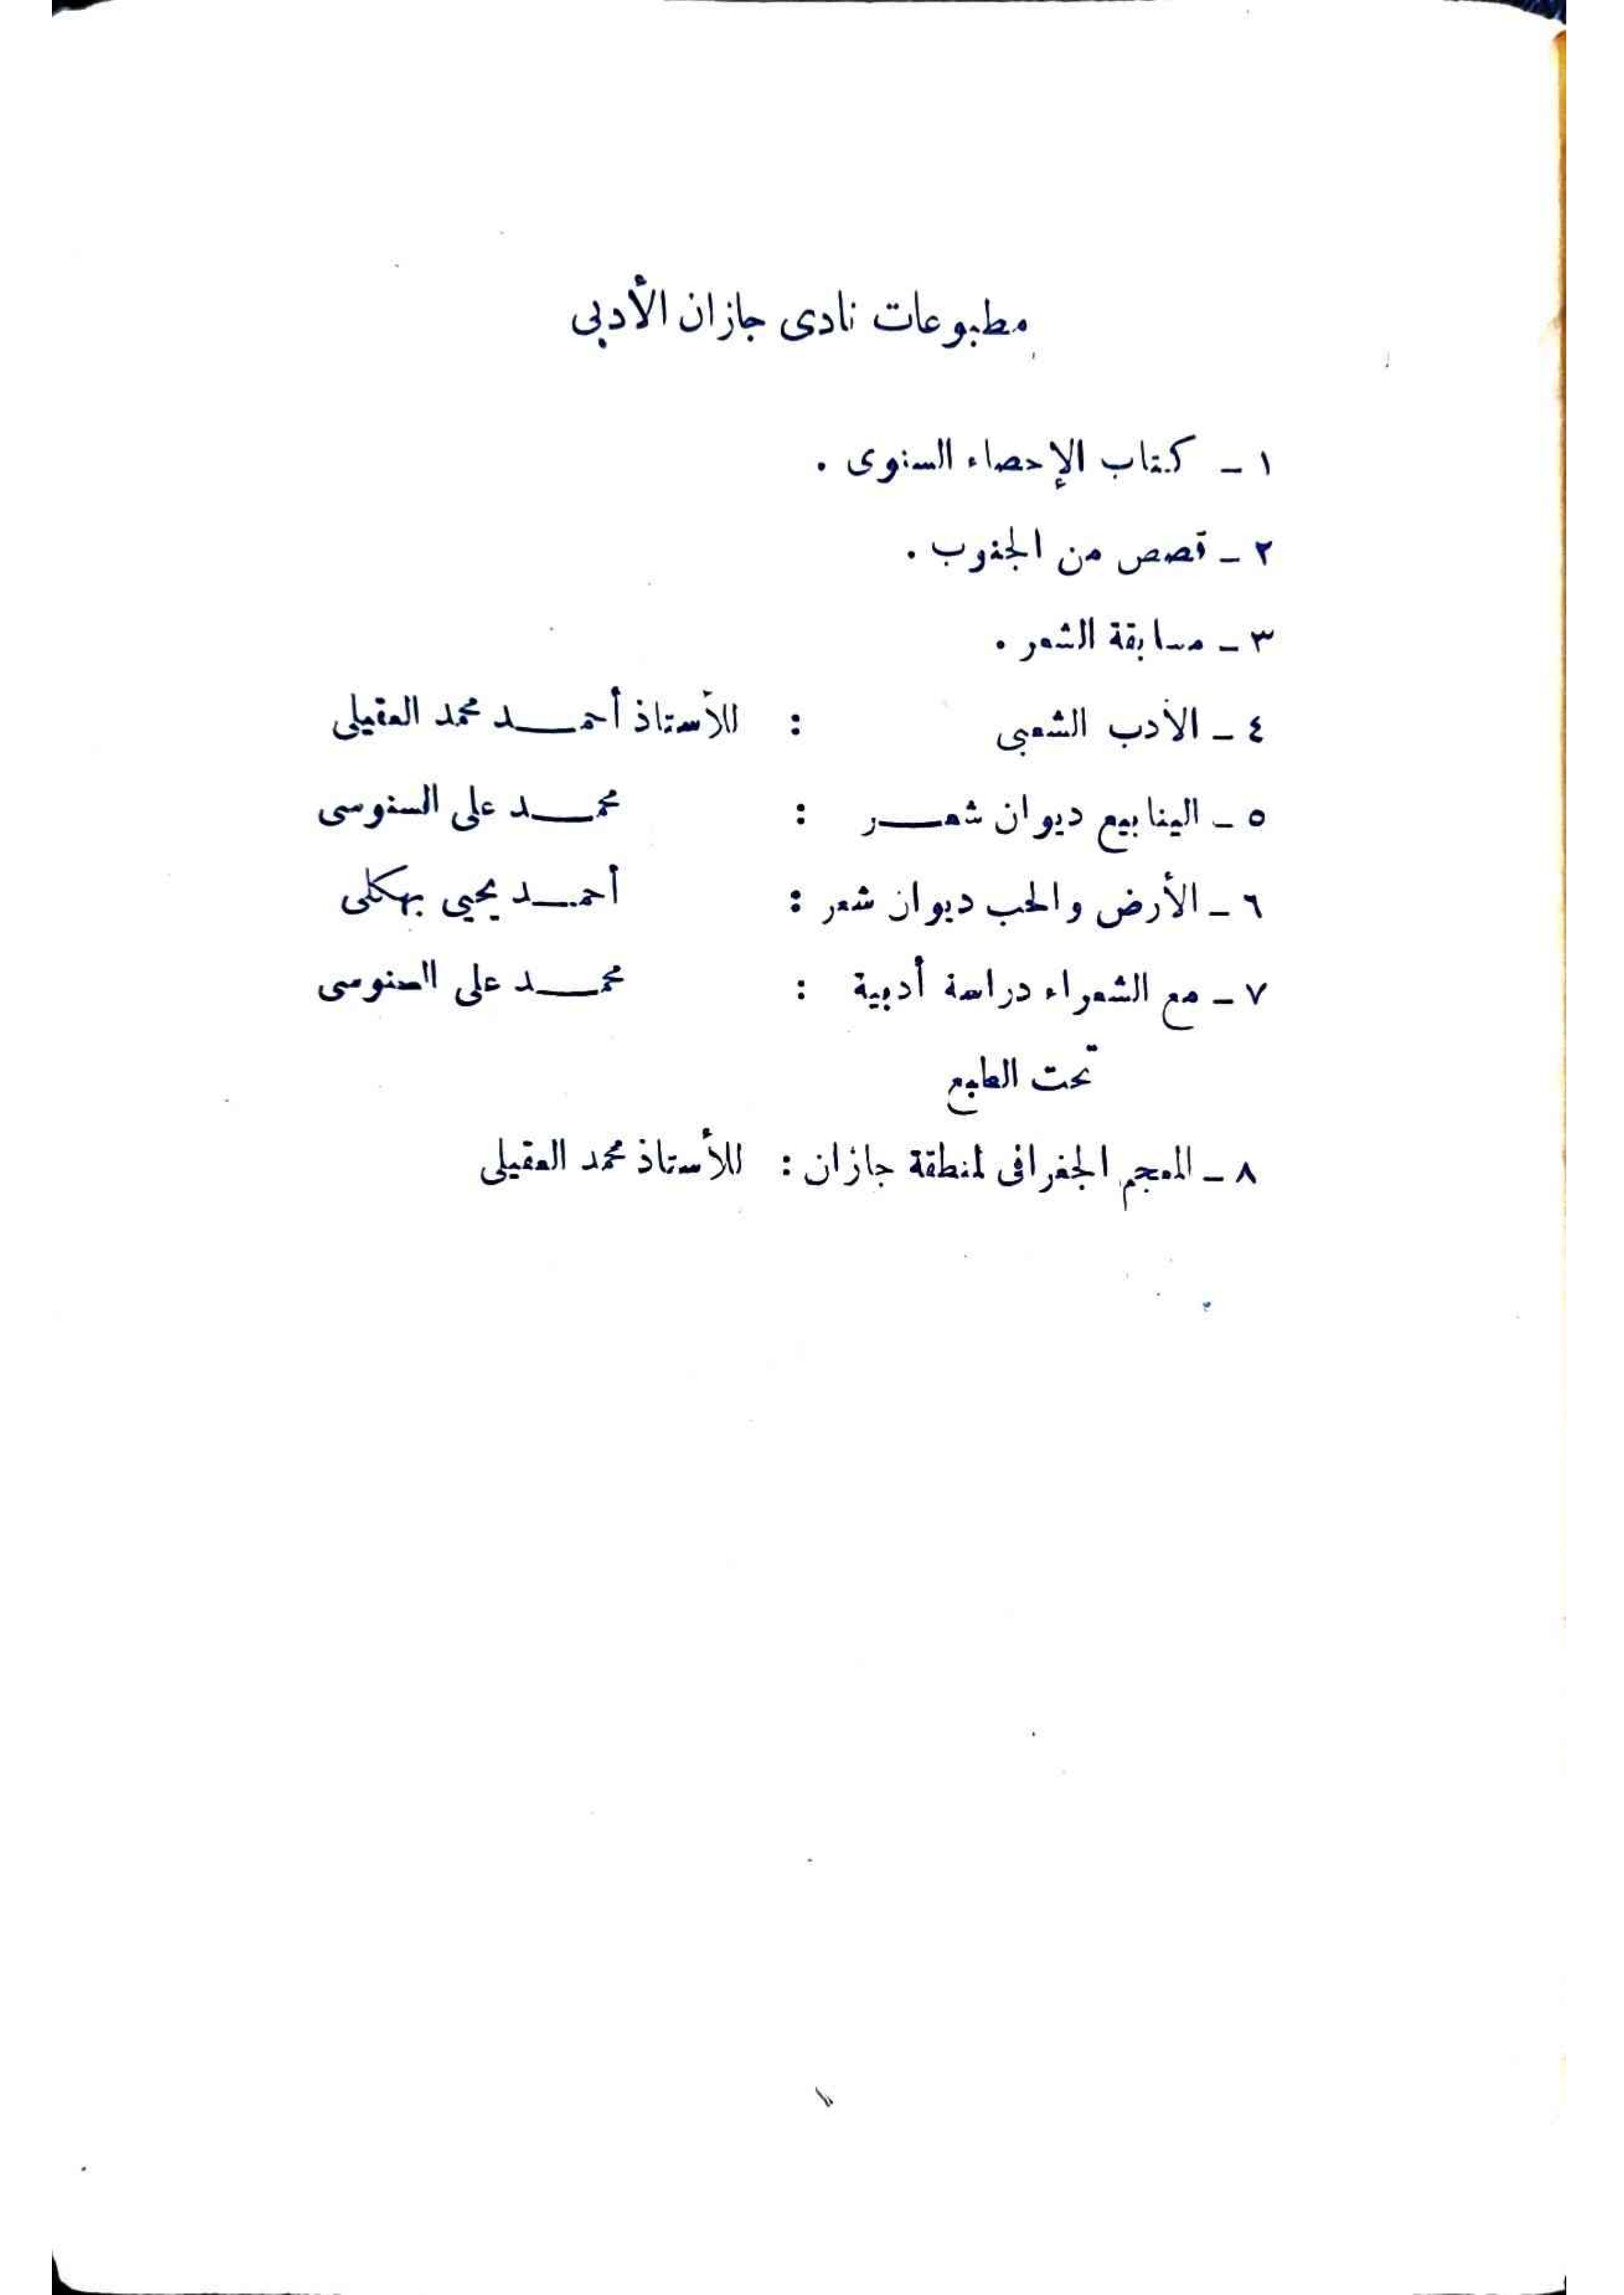 مطبوعات نادى جازان الأدبى
١ - كتاب الإحصاء السنوى .
٢ - قصص من الجنوب .
٣ - مسابقة الشعر .
٤ - الأدب الشعبى : للأستاذ أحمـــد محمد العقيلى
٥ - الينابيع ديوان شعـــر : محمـــد على السنوسى
٦ - الأرض والحب ديوان شعر : أحمـــد يحيى بهكلى
٧ - مع الشعراء دراسة أدبية : محمـــد على السنوسى
تحت الطبع
٨ - المعجم الجغرافى لمنطقة جازان : للأستاذ محمد العقيلى